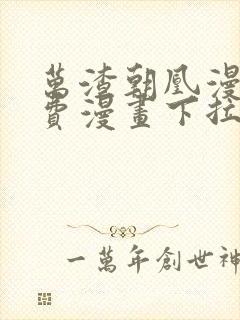 萬渣朝凰漫
費漫畫下拉
一萬年創世神